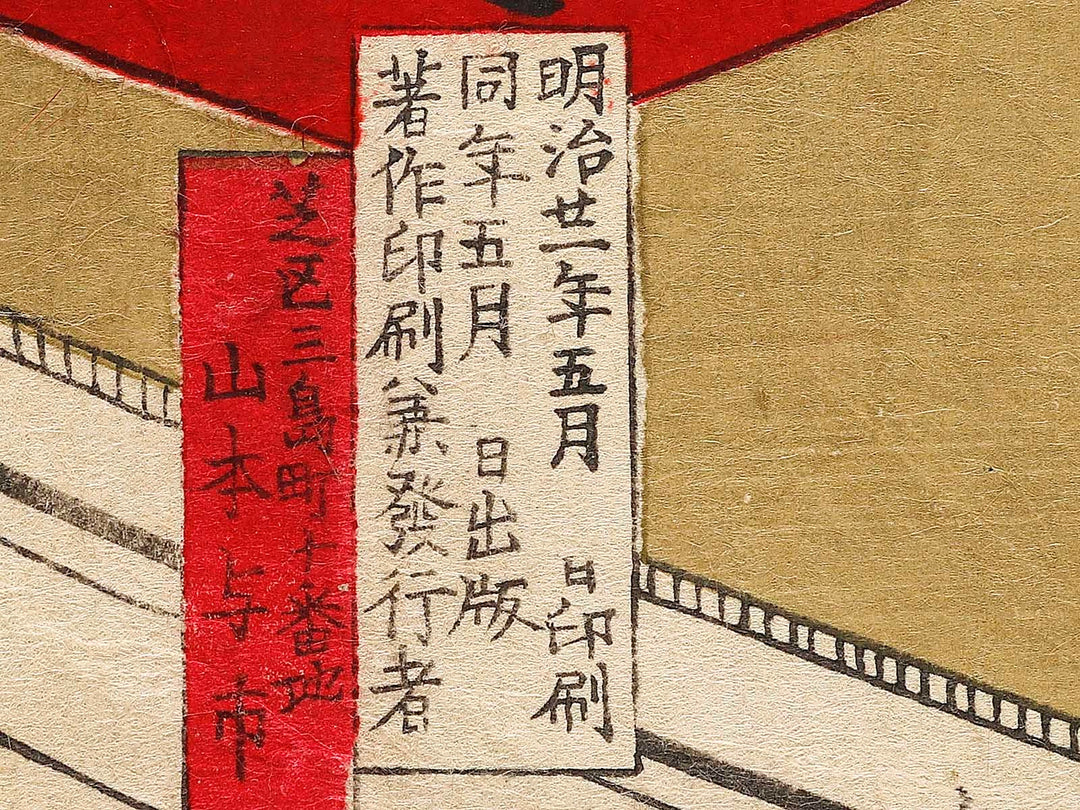 明治廿一年五月　日印刷
同年五月　日出版
著作印刷兼發行者
芝区三島町十番地
山本与市